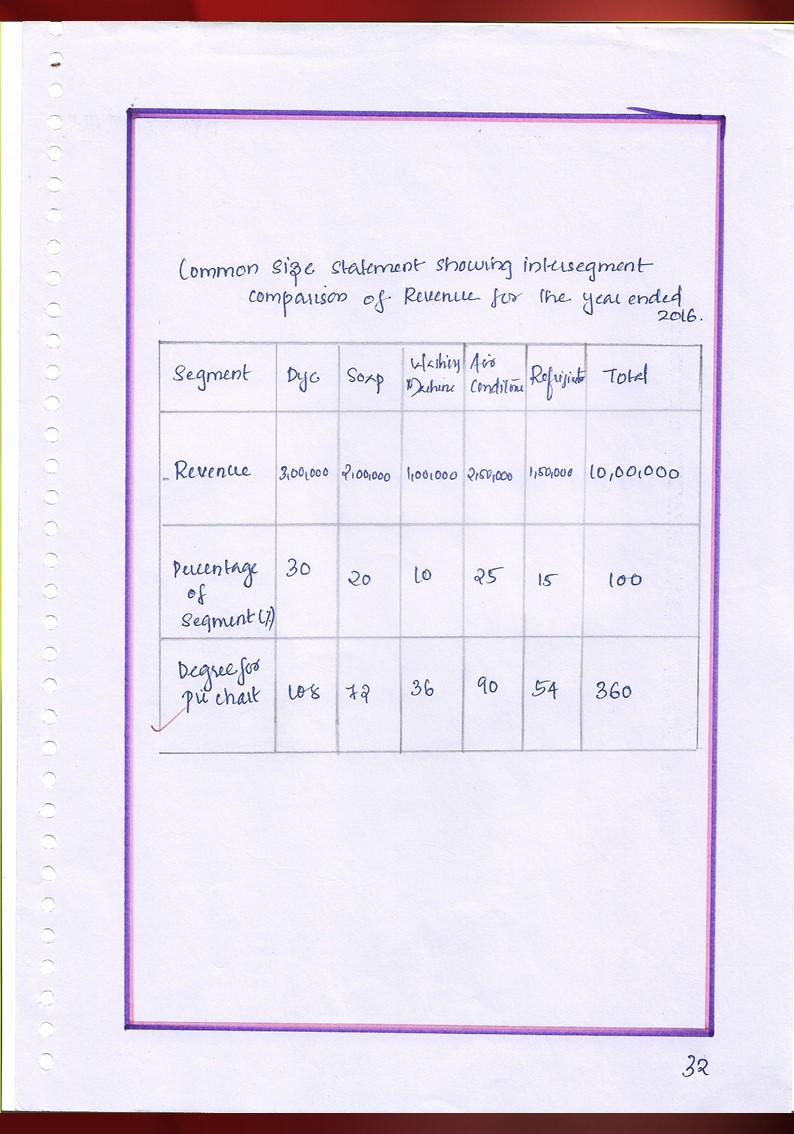 Common size statement showing intersegment
comparison of Revenue for the year ended
2016.
Segment Dye Soap Washing Machine Air Conditione Refrijirator Total
Revenue 3,00,000 2,00,000 1,00,000 2,50,000 1,50,000 10,00,000
Percentage 30 20 10 25 15 100
of
Segment (%)
Degree for
pie chart 108 72 36 90 54 360
32